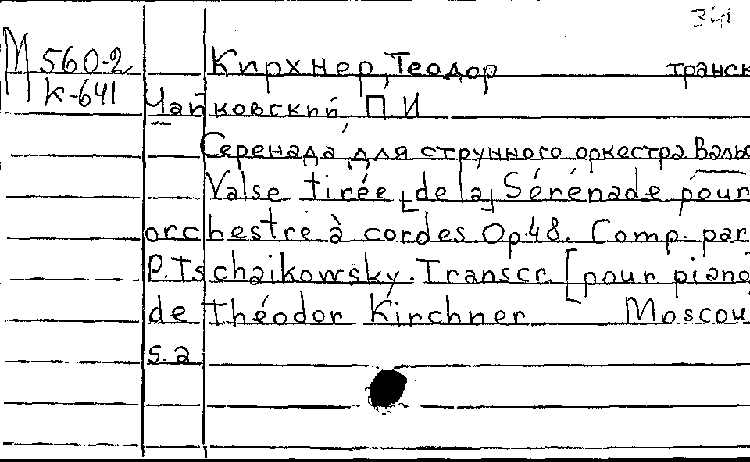 341
М 560-2 Кирхнер, Теодор транск
К-641 Чайковский, П. И
Серенада для струнного оркестра Вальс
Valse tirée [de la] Sérénade pour
orchestre à cordes Op 48. Comp. par
P. Tschaikowsky. Transcr. [pour piano
de Théodor Kirchner Moscou
s.a